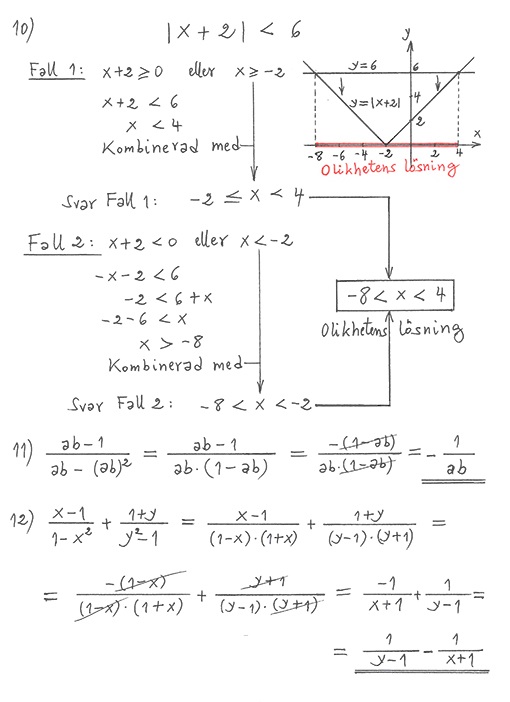 10) |x + 2| < 6
Fall 1: x+2 ≥ 0 eller x ≥ -2
x+2 < 6
x < 4
Kombinerad med
Svar Fall 1: -2 ≤ x < 4
y
y=6
6
y=|x+2|
4
2
x
-8 -6 -4 -2 2 4
Olikhetens lösning
Fall 2: x+2 < 0 eller x < -2
-x-2 < 6
-2 < 6+x
-2-6 < x
x > -8
Kombinerad med
Svar Fall 2: -8 < x < -2
-8 < x < 4
Olikhetens lösning
11) (ab-1)/(ab-(ab)²) = (ab-1)/(ab·(1-ab)) = (-(1-ab))/(ab·(1-ab)) = -1/(ab)
12) (x-1)/(1-x²) + (1+y)/(y²-1) = (x-1)/((1-x)·(1+x)) + (1+y)/((y-1)·(y+1)) =
= (-(1-x))/((1-x)·(1+x)) + (y+1)/((y-1)·(y+1)) = (-1)/(x+1) + 1/(y-1) =
= 1/(y-1) - 1/(x+1)